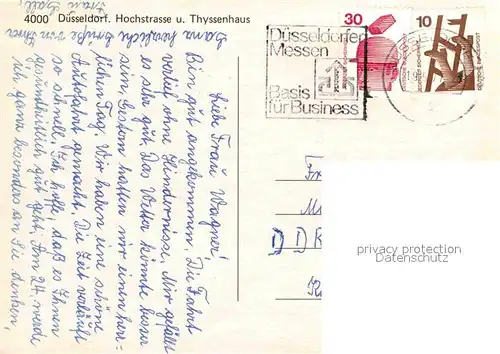 4000 Düsseldorf. Hochstrasse u. Thyssenhaus
Liebe Frau Wagner!
Bin gut angekommen. Die Fahrt
verlief ohne Hindernisse. Mir gefällt
es sehr gut. Das Wetter könnte besser
sein. Gestern hatten wir einen herr-
lichen Tag. Wir haben eine schöne
Autofahrt gemacht. Die Zeit verläuft
so schnell. Ich hoffe, daß es Ihnen
gesundheitlich gut geht. Am 24. werde
ich ganz besonders an Sie denken.
Ganz herzliche Grüße von Ihrer
Frau
Düsseldorfer
Messen
Basis
für Business
30
10
DEUTSCHE BUNDESPOST
Fr
DDR
privacy protection
my-postcard.com